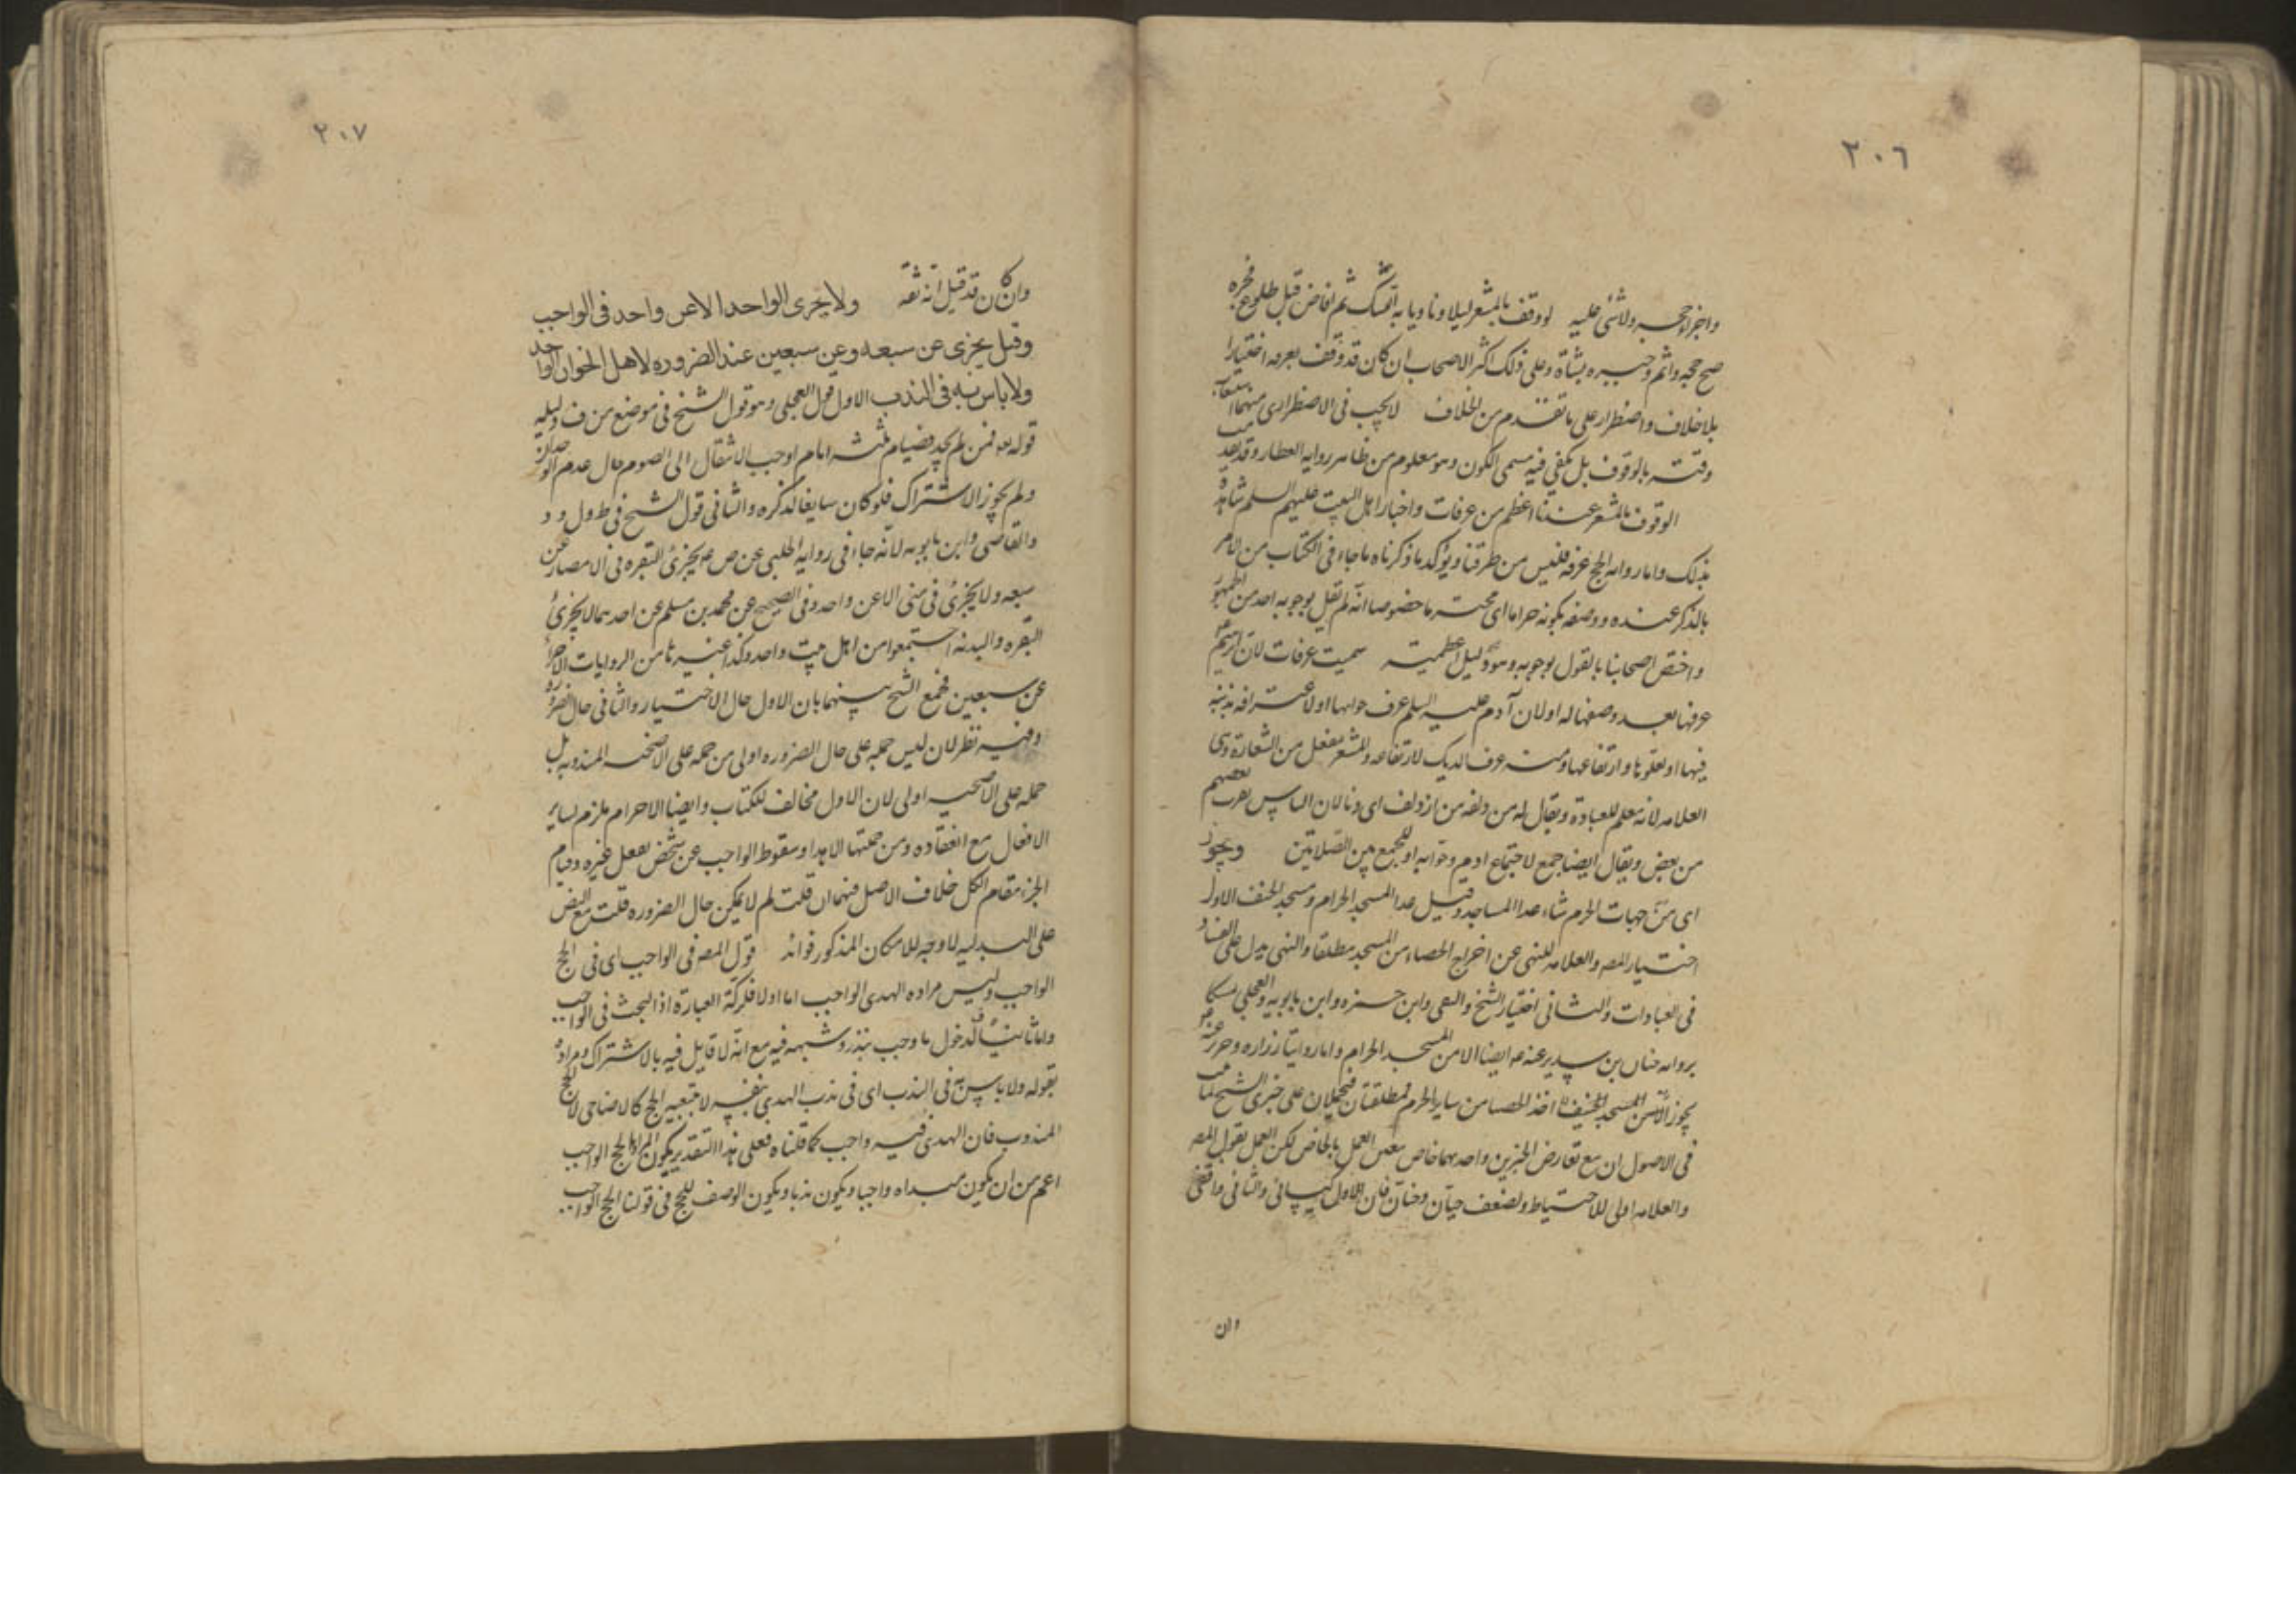 ٢٠٦
واجزأ حجه ولا شئ عليه لو وقف بالمشعر ليلا وناويا به ثم افاض قبل طلوع فجره
صح حجه واثم وجبره بشاة وعلى ذلك اكثر الاصحاب ان كان قد وقف بعرفه اختيارا
بلا خلاف واضطرار على ما تقدم من الخلاف لا يجب في الاضطرارى منهما استيعاب
وقته بالوقوف بل يكفي فيه مسمى الكون وهو معلوم من ظاهر رواية العطار وقد
الوقوف بالمشعر عندنا اعظم من عرفات واخبار اهل البيت عليهم السلم شاهدة
بذلك واما رواية الحج عرفة فليس من طرقنا ويؤكد ما ذكرناه ما جاء في الكتاب من الامر
بالذكر عنده ووصفه بكونه حراما اى محترما خصوصا انه لم يقل بوجوبه احد من الجمهور
واختص اصحابنا بالقول بوجوبه وهو دليل اعظميته سميت عرفات لان ابرهيم
عرفها بعد وصفها له او لان آدم عليه السلم عرف حوا بها او لاعترافه بذنبه
فيها او لعلوها وارتفاعها ومنه عرف الديك لارتفاعه والمشعر مفعل من الشعارة وهى
العلامه لانه معلم للعبادة ويقال له مزدلفه من ازدلف اى دنا لان الناس يقرب بعضهم
من بعض ويقال ايضا جمع لاجتماع ادم وحوا به او للجمع بين الصلاتين ويجوز
اى من جهات الحرم شاء عدا المساجد وقيل عدا المسجد الحرام ومسجد الخيف الاول
اختيار المصه والعلامه للنهى عن اخراج الحصاء من المسجد مطلقا والنهى يدل على الفساد
في العبادات والثانى اختيار الشيخ والتقى وابن حمزه وابن بابويه والعجلى تمسكا
بروايه حنان بن سدير عنه ع ايضا الا من المسجد الحرام واما روايتا زراره وحريز عنه ع
يجوز اخذ الحصا من ساير الحرم فمطلقتان فتحملان على خبرى الشيخ لما
في الاصول ان مع تعارض الخبرين واحدهما خاص يتعين العمل بالخاص لكن العمل بقول المصه
والعلامه اولى للاحتياط ولضعف حنان فان الاول كيسانى والثانى واقفى
وان
٢٠٧
وان كان قد قيل انه ثقه ولا يجزى الواحد الا عن واحد فى الواجب
وقيل يجزى عن سبعه وعن سبعين عند الضروره لاهل الخوان الواحد
ولا باس به فى الندب الاول قول العجلى وهو قول الشيخ في موضع من ف ودليله
قوله تعه فمن لم يجد فصيام ثلثه ايام اوجب الانتقال الى الصوم حال عدم الوجدان
ولم يجوز الاشتراك فلو كان سايغا لذكره والثانى قول الشيخ في ط ول ود
والقاضى وابن بابويه لانه جاء في رواية الحلبى عن ص ع يجزئ البقره في الامصار عن
سبعه ولا يجزئ في منى الا عن واحد وفى الصحيح عن محمد بن مسلم عن احدهما لا يجزئ
البقره والبدنه اجتمعوا من اهل بيت واحد وكذا غيرها من الروايات الاجزاء
عن سبعين فجمع الشيخ بينهما بان الاول حال الاختيار والثانى حال الضروره
وفيه نظر لان ليس حمله على حال الضروره اولى من حمله على الاضحيه المندوبه بل
حمله على الاضحيه اولى لان الاول مخالف للكتاب وايضا الاحرام ملزم لساير
الافعال مع انعقاده ومن جملتها الاهدا وسقوط الواجب عن شخص بفعل غيره وقيام
الجزء مقام الكل خلاف الاصل فيهما ان قلت لم لا يمكن حال الضروره قلت مع النص
على البدليه لا وجه للامكان المذكور فوائد قول المصه في الواجب اى في الحج
الواجب وليس مراده الهدى الواجب اما اولا فلركة العبارة اذ البحث في الواجب
واما ثانيا لدخول ما وجب بنذر وشبهه فيه مع انه لا قايل فيه بالاشتراك ومراده
بقوله ولا باس به في الندب اى في ندب الهدى بنفسه لا بتبعيه الحج كالاضاحى لا الحج
المندوب فان الهدى فيه واجب كما قلناه فعلى هذا التقدير يكون المراد بالحج الواجب
اعم من ان يكون مبداه واجبا ويكون ندبا ويكون الوصف للحج في قولنا الحج الواجب